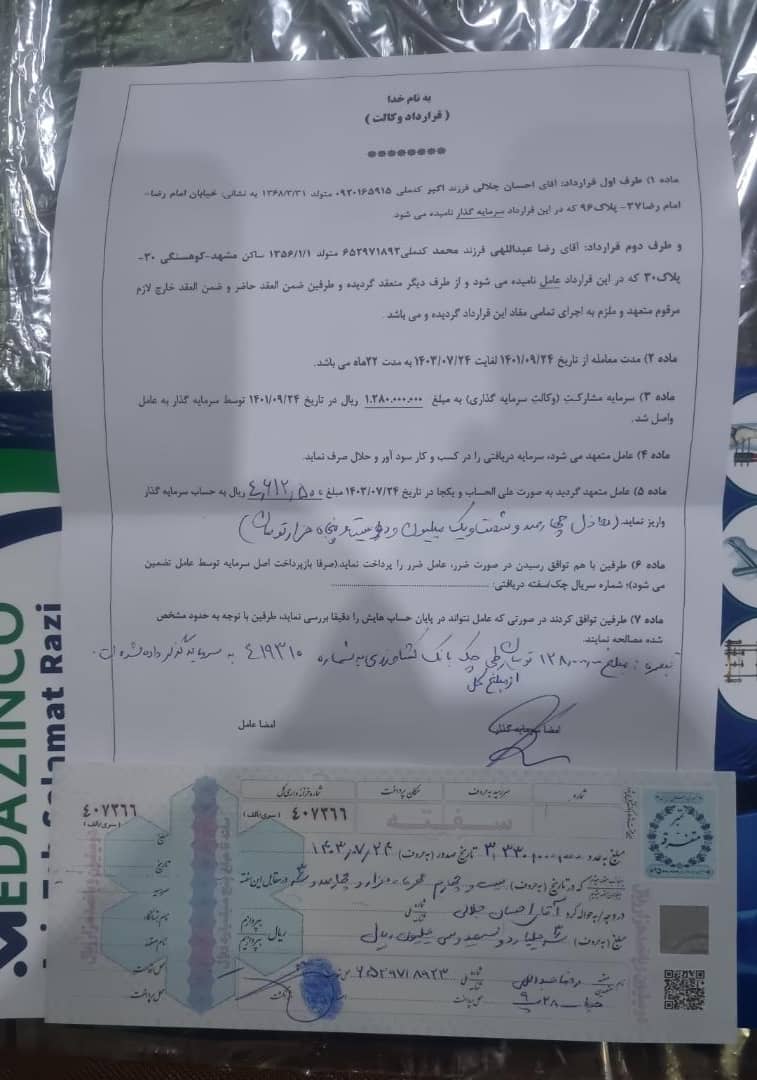 به نام خدا
( قرارداد وکالت )
********
ماده ۱) طرف اول قرارداد: آقای احسان جلالی فرزند اکبر کدملی ۰۹۲۰۱۶۵۹۱۵ متولد ۱۳۶۸/۳/۳۱ به نشانی: خیابان امام رضا-
امام رضا۳۷- پلاک۹۶ که در این قرارداد سرمایه گذار نامیده می شود.
و طرف دوم قرارداد: آقای رضا عبداللهی فرزند محمد کدملی۶۵۲۹۷۱۸۹۲ متولد ۱۳۵۶/۱/۱ ساکن مشهد-کوهسنگی ۳۰-
پلاک۳۰ که در این قرارداد عامل نامیده می شود و از طرف دیگر منعقد گردیده و طرفین ضمن العقد حاضر و ضمن العقد خارج لازم
مرقوم متعهد و ملزم به اجرای تمامی مفاد این قرارداد گردیده و می باشد.
ماده ۲) مدت معامله از تاریخ ۱۴۰۱/۰۹/۲۴ لغایت ۱۴۰۳/۰۷/۲۴ به مدت ۲۲ماه می باشد.
ماده ۳) سرمایه مشارکت (وکالت سرمایه گذاری) به مبلغ ۱.۲۸۰.۰۰۰.۰۰۰ ریال در تاریخ ۱۴۰۱/۰۹/۲۴ توسط سرمایه گذار به عامل
واصل شد.
ماده ۴) عامل متعهد می شود، سرمایه دریافتی را در کسب و کار سود آور و حلال صرف نماید.
ماده ۵) عامل متعهد گردید به صورت علی الحساب و یکجا در تاریخ ۱۴۰۳/۰۷/۲۴ مبلغ ریال به حساب سرمایه گذار
واریز نماید. (معادل چهارصد و شصت و یک میلیون و دویست و پنجاه هزار تومان)
ماده ۶) طرفین با هم توافق رسیدن در صورت ضرر، عامل ضرر را پرداخت نماید.(صرفا بازپرداخت اصل سرمایه توسط عامل تضمین
می شود)؛ شماره سریال چک/سفته دریافتی:
ماده ۷) طرفین توافق کردند در صورتی که عامل نتواند در پایان حساب هایش را دقیقا بررسی نماید، طرفین با توجه به حدود مشخص
شده مصالحه نمایند.
تبصره: مبلغ تومان طی چک بانک کشاورزی به شماره ۴۱۹۳۱۰ به سرمایه گذار داده شده
از مبلغ کل
امضا سرمایه گذار
امضا عامل
شماره خزانه داری کل
مکان پرداخت
سررسید به حروف
شماره
۴۰۷۳۶۶
(سری/الف)
۴۰۷۳۶۶ (سری/الف)
سفته
مبلغ به عدد تاریخ صدور (به حروف) ۱۴۰۳،۷،۲۴
که در تاریخ (به حروف) بیست و چهارم مهر ماه هزار و چهارصد و سه در مقابل این سفته
در وجه / به حواله کرد آقای احسان جلالی
مبلغ (به حروف) میلیون ریال
ریال بپردازم
نام رضا عبداللهی ۶۵۲۹۷۱۸۹۲۳
محل پرداخت
MEDAZINCO
Salamat Razi